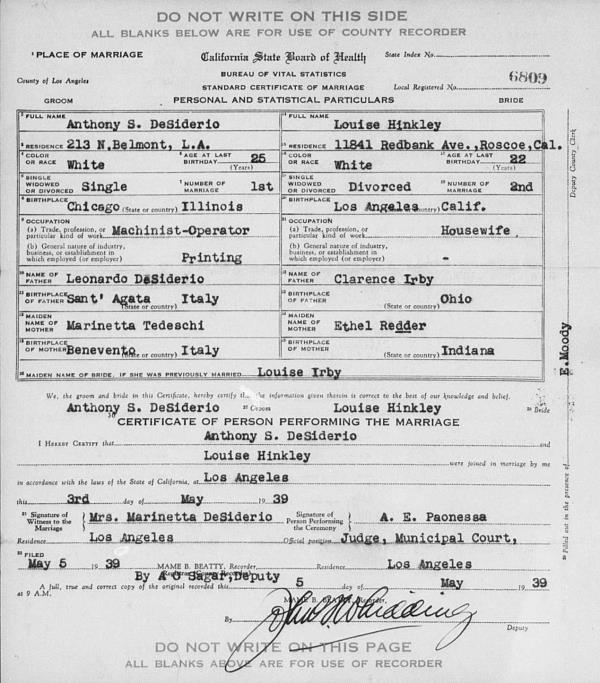 DO NOT WRITE ON THIS SIDE
ALL BLANKS BELOW ARE FOR USE OF COUNTY RECORDER
PLACE OF MARRIAGE
California State Board of Health
State Index No.
BUREAU OF VITAL STATISTICS
County of Los Angeles
STANDARD CERTIFICATE OF MARRIAGE
Local Registered No. 6809
GROOM PERSONAL AND STATISTICAL PARTICULARS BRIDE
FULL NAME Anthony S. DeSiderio FULL NAME Louise Hinkley
RESIDENCE 213 N.Belmont, L.A. RESIDENCE 11841 Redbank Ave.,Roscoe,Cal.
COLOR OR RACE White AGE AT LAST BIRTHDAY 25 (Years) COLOR OR RACE White AGE AT LAST BIRTHDAY 22 (Years)
SINGLE WIDOWED OR DIVORCED Single NUMBER OF MARRIAGE 1st SINGLE WIDOWED OR DIVORCED Divorced NUMBER OF MARRIAGE 2nd
BIRTHPLACE Chicago (State or country) Illinois BIRTHPLACE Los Angeles (State or country) Calif.
OCCUPATION OCCUPATION
(a) Trade, profession, or particular kind of work Machinist-Operator (a) Trade, profession, or particular kind of work Housewife
(b) General nature of industry, business, or establishment in which employed (or employer) Printing (b) General nature of industry, business, or establishment in which employed (or employer) -
NAME OF FATHER Leonardo DeSiderio NAME OF FATHER Clarence Irby
BIRTHPLACE OF FATHER Sant' Agata Italy (State or country) BIRTHPLACE OF FATHER (State or country) Ohio
MAIDEN NAME OF MOTHER Marinetta Tedeschi MAIDEN NAME OF MOTHER Ethel Redder
BIRTHPLACE OF MOTHER Benevento (State or country) Italy BIRTHPLACE OF MOTHER (State or country) Indiana
MAIDEN NAME OF BRIDE, IF SHE WAS PREVIOUSLY MARRIED Louise Irby
We, the groom and bride in this Certificate, hereby certify the information given therein is correct to the best of our knowledge and belief.
Anthony S. DeSiderio Groom Louise Hinkley Bride
CERTIFICATE OF PERSON PERFORMING THE MARRIAGE
I HEREBY CERTIFY that Anthony S. DeSiderio and
Louise Hinkley were joined in marriage by me
in accordance with the laws of the State of California, at Los Angeles
this 3rd day of May 1939
Signature of Witness to the Marriage Mrs. Marinetta DeSiderio Signature of Person Performing the Ceremony A. E. Paonessa
Residence Los Angeles Official position Judge, Municipal Court,
FILED May 5 1939 MAME B. BEATTY, Recorder Residence Los Angeles
By A G Sagar, Deputy
A full, true and correct copy of the original recorded this 5 day of May 1939
at 9 A.M. MAME B. BEATTY, Recorder,
By Deputy
DO NOT WRITE ON THIS PAGE
ALL BLANKS ABOVE ARE FOR USE OF RECORDER
Filled out in the presence of E.Moody Deputy County Clerk